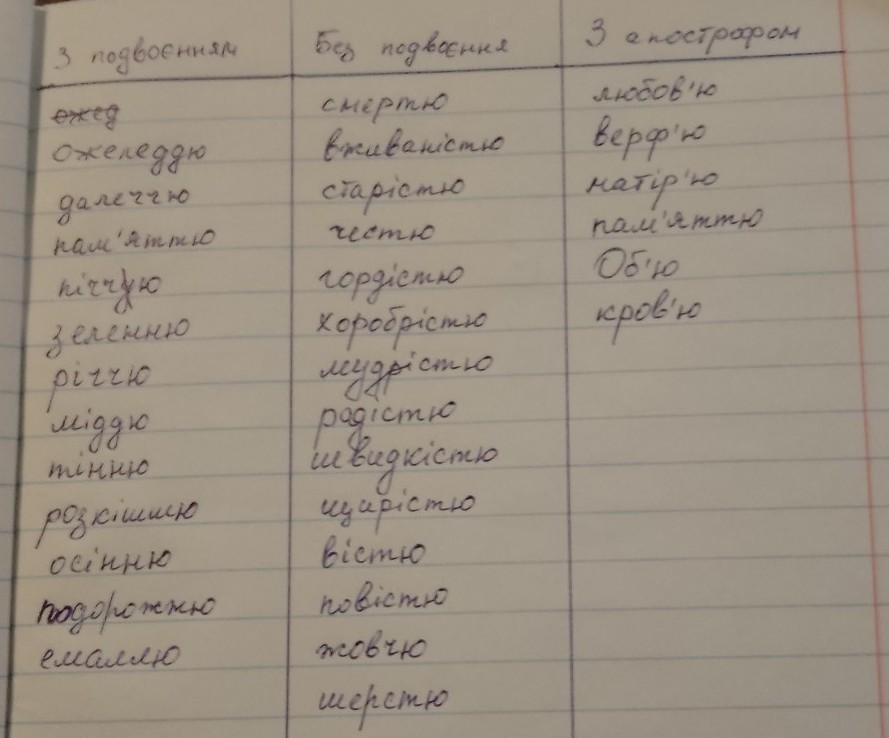 З подвоєнням Без подвоєння З апострофом
ожед смертю любов'ю
ожеледдю вживаністю верф'ю
далеччю старістю матір'ю
пам'яттю честю пам'яттю
піччю гордістю Об'ю
зеленню хоробрістю кров'ю
річчю мудрістю
міддю радістю
тінню швидкістю
розкішшю щирістю
осінню вістю
подорожжю повістю
емаллю жовчю
шерстю